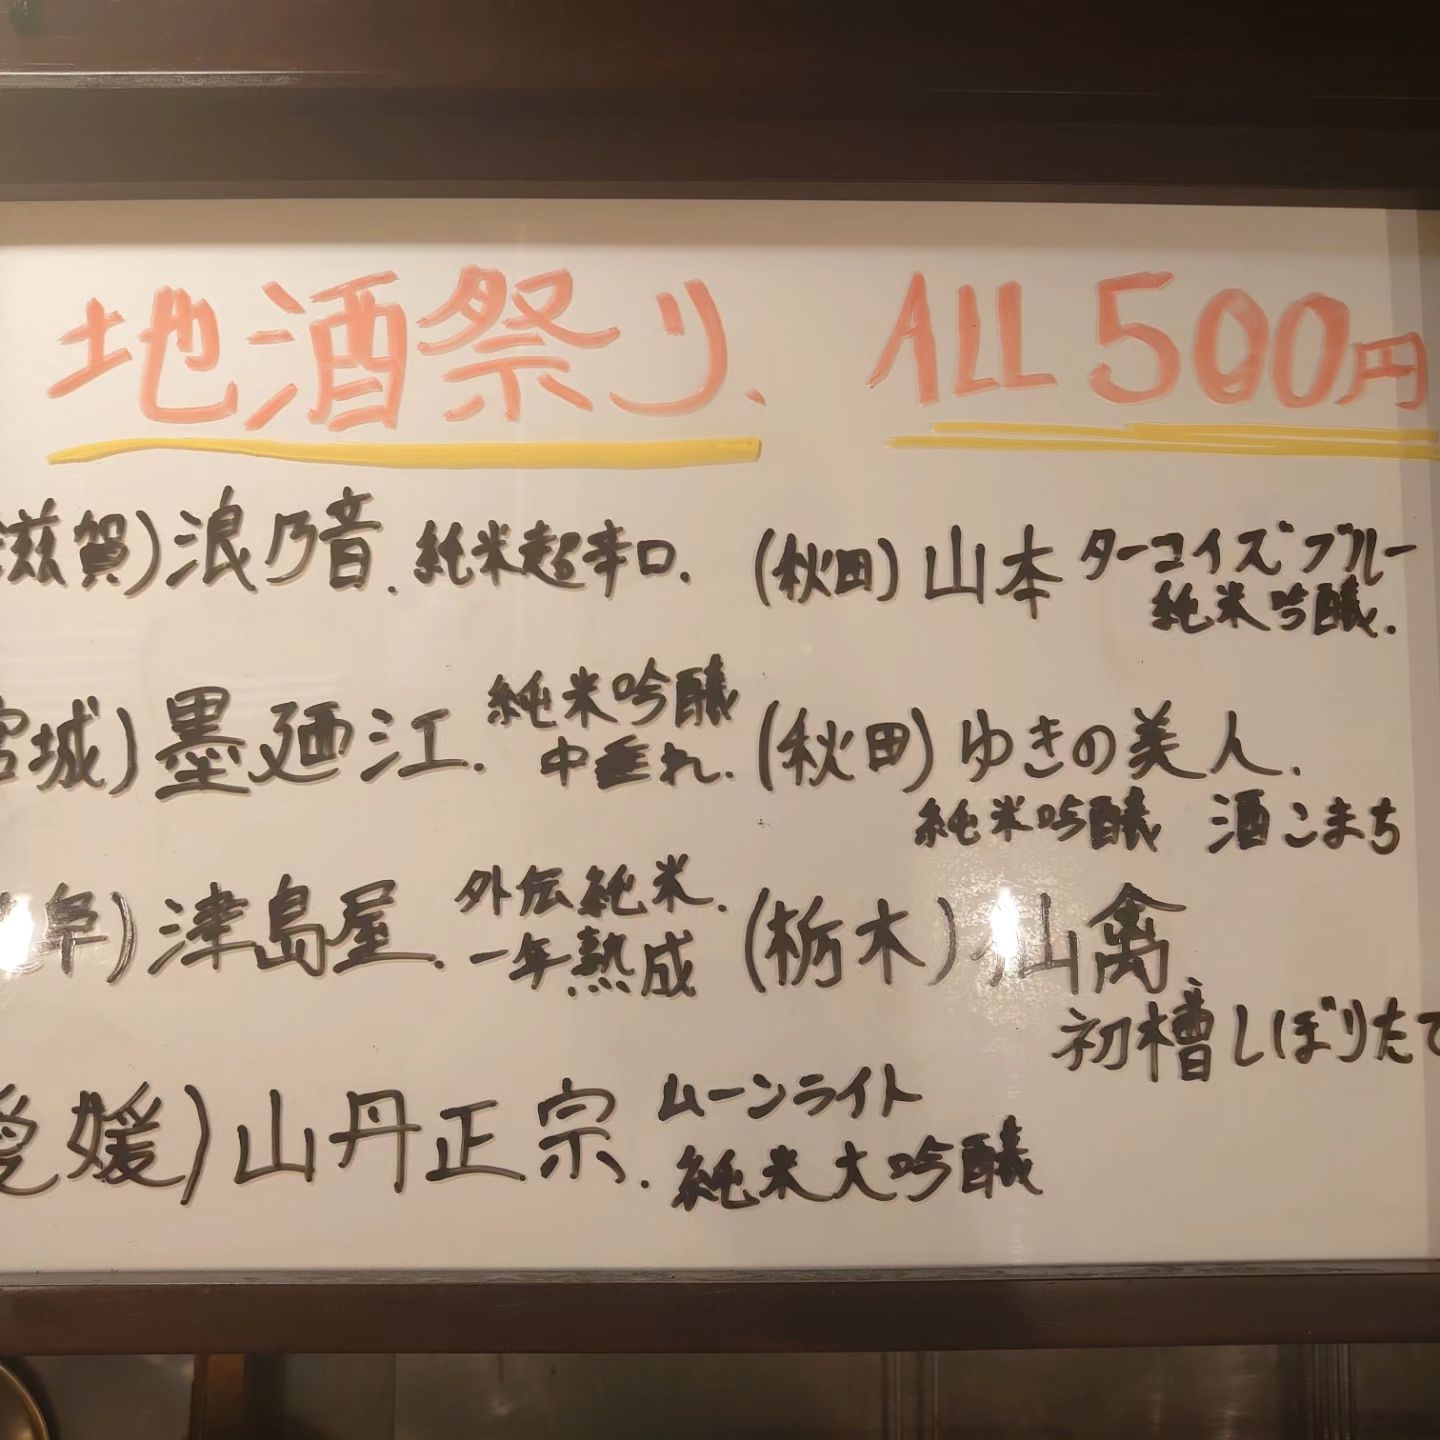 地酒祭り、 ALL 500円
滋賀)浪乃音. 純米超辛口.
宮城)墨廼江. 純米吟醸
中垂れ.
阜)津島屋. 外伝純米.
一年熟成
愛媛)山丹正宗. ムーンライト
純米大吟醸
(秋田)山本 ターコイズブルー
純米吟醸.
(秋田)ゆきの美人.
純米吟醸 酒こまち
(栃木)仙禽、
初槽しぼりたて